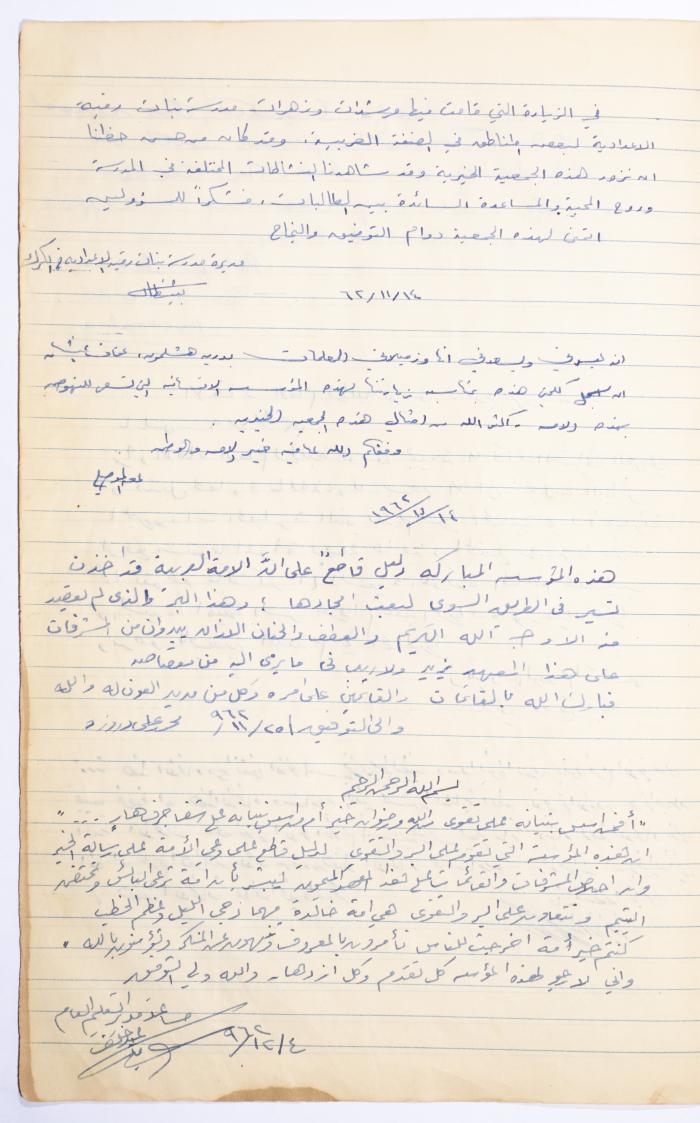 في الزيارة التي قامت فيها مرشدات وزهرات مدرسة بنات رقية
الاعدادية لبعض المناطق في الضفة الغربية، وقد كان من حسن حظنا
ان نزور هذه الجمعية الخيرية وقد شاهدنا النشاطات المختلفة في المدرسة
وروح المحبة والمساعدة السائدة بين الطالبات. فشكراً للمسؤولين
اتمنى لهذه الجمعية دوام التوفيق والنجاح
مديرة مدرسة بنات رقية الاعدادية في الكرك
٦٢/١١/١٤
انه ليسرني ويسعدني انا وزميلاتي المعلمات بدرية
ان كلمتي هذه بمناسبة زيارتنا لهذه المؤسسه الانسانيه التي تسعى للنهوض
بهذه الامه . اكثر الله من امثال هذه الجمعيه الخيريه .
وفقكم الله لما فيه خير الامه والوطن
١٩٦٢/١١/١٤
هذه المؤسسه المباركه دليل قاطع على انَّ الامة العربية قد اخذت
تسير في الطريق السوي لبعث امجادها ؛ وهذا البر والذي لم يقصد
منه الا وجه الله الكريم والعطف والحنان اللذان يبدوان من المشرفات
على هذا المعهد يزيد ولا ريب في ما يرمى اليه من
فبارك الله بالقائمات والقائمين على امره وكل من مد يد العون له والله
ولي التوفيق ٩٦٢/١١/٢٥ محمد علي دروزه
بسم الله الرحمن الرحيم
"أفمن اسس بنيانه على تقوى من الله ورضوان خير أم من اسس بنيانه على شفا جرف هارٍ ...."
ان هذه المؤسسة التي تقوم على البر والتقوى لدليل قاطع على وعي الأمة على رسالة الخير
وان اخلاص المشرفات والقائمات على هذا المعهد الميمون ليبشر بأن امة ترعى البائس وتحتضن
اليتيم وتتعاون على البر والتقوى هي امة خالدة مهما دجى الليل وعظم الخطب
كنتم خير أمة اخرجت للناس تأمرون بالمعروف وتنهون عن المنكر وتؤمنون بالله .
واني لارجو لهذه المؤسسه كل تقدم وكل ازدهار والله ولي التوفيق
مساعد مدير التعليم العام
٩٦٢/١٢/٤